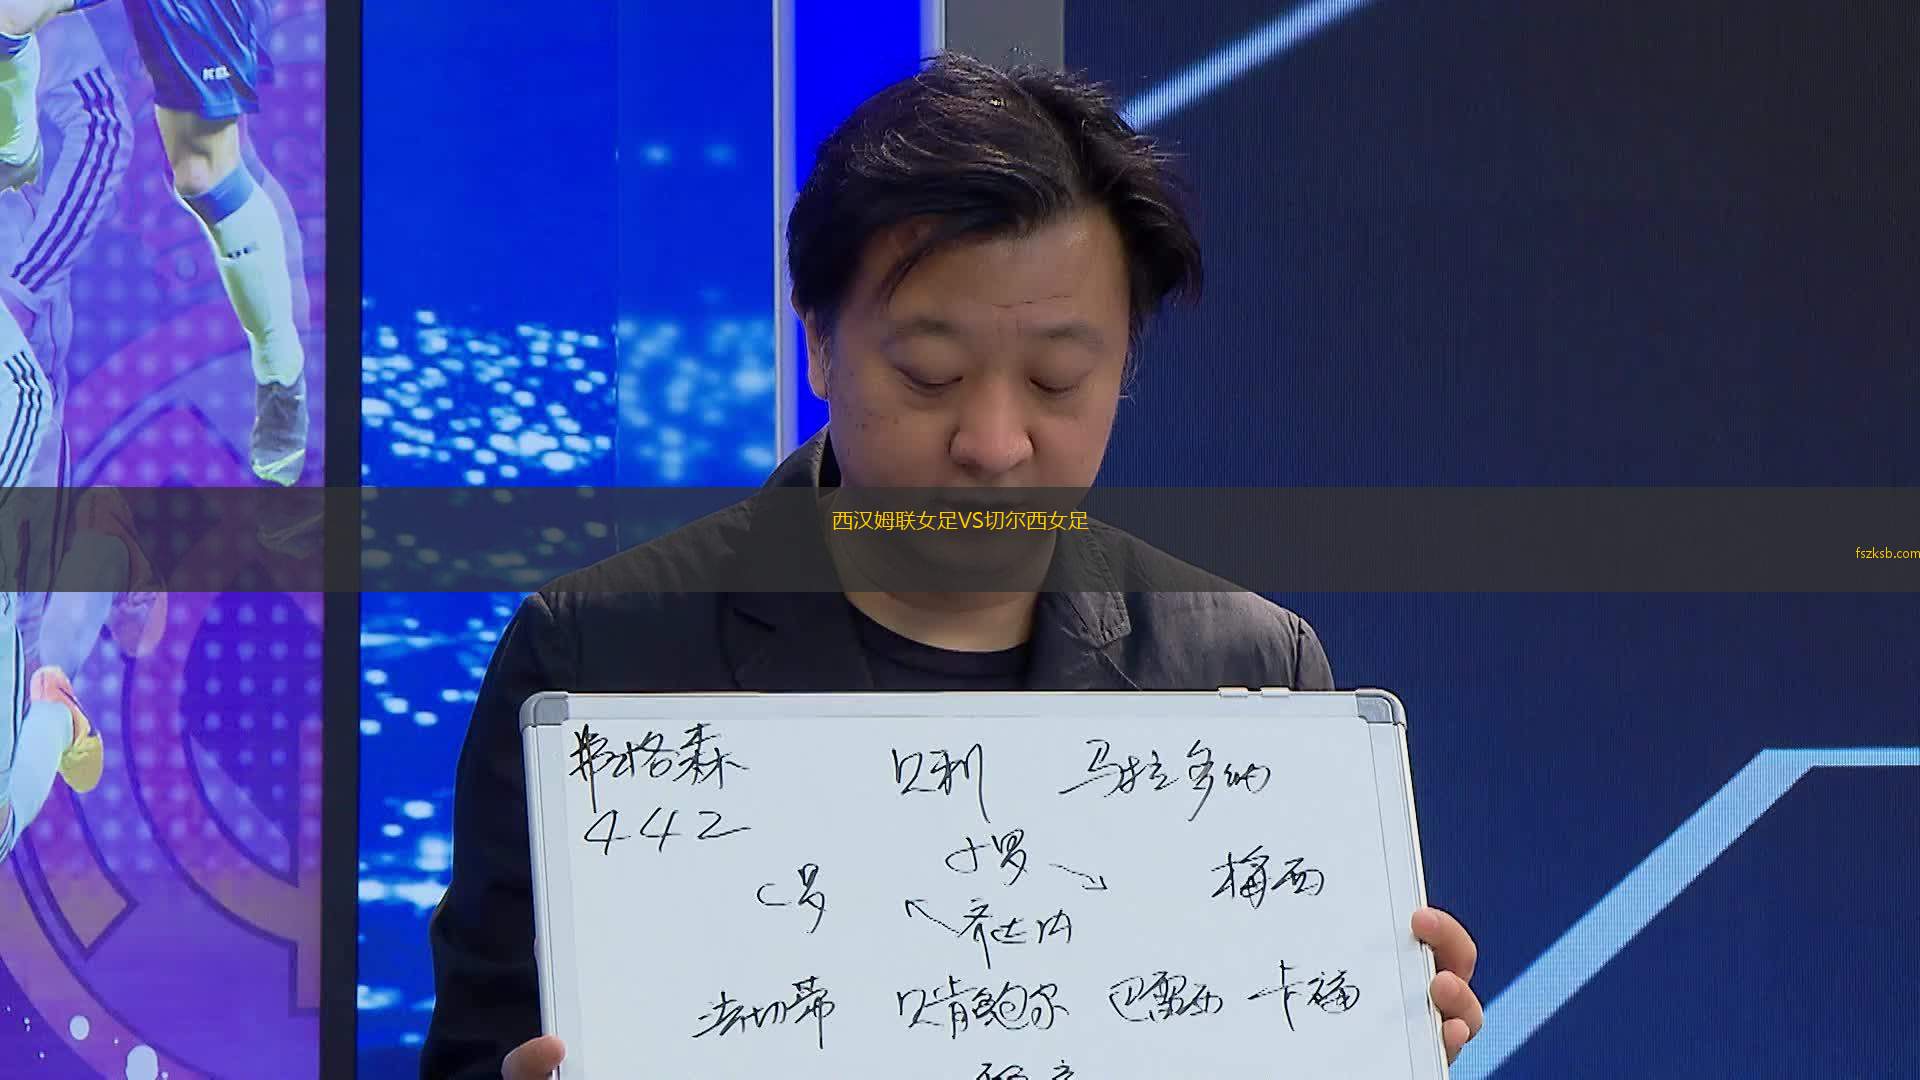 西汉姆联女足VS切尔西女足
fszksb.com
弗格森 贝利 马拉多纳
442
小罗
C罗 梅西
齐达内
法切蒂 贝肯鲍尔 巴雷西 卡福